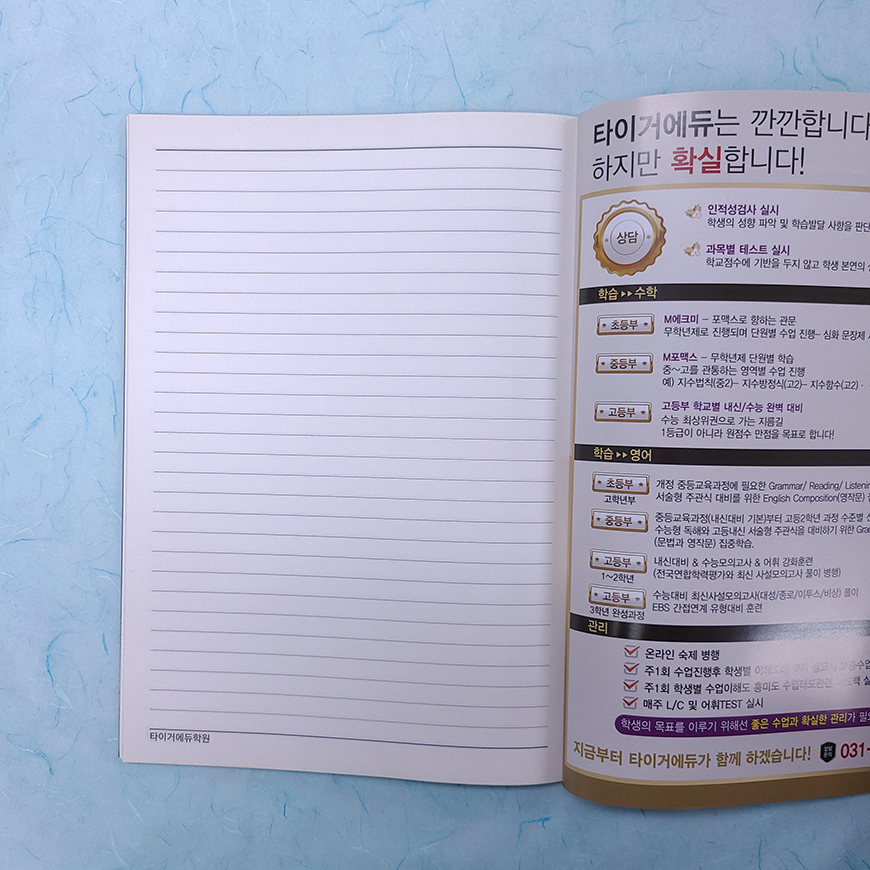 타이거에듀학원
타이거에듀는 깐깐합니다
하지만 확실합니다!
상담
인적성검사 실시
학생의 성향 파악 및 학습발달 사항을 판단
과목별 테스트 실시
학교점수에 기반을 두지 않고 학생 본연의
학습 ▶▶ 수학
초등부
M에크미 – 포맥스로 향하는 관문
무학년제로 진행되며 단원별 수업 진행– 심화 문장제
중등부
M포맥스 – 무학년제 단원별 학습
중~고를 관통하는 영역별 수업 진행
예) 지수법칙(중2)– 지수방정식(고2)– 지수함수(고2) ·
고등부
고등부 학교별 내신/수능 완벽 대비
수능 최상위권으로 가는 지름길
1등급이 아니라 원점수 만점을 목표로 합니다!
학습 ▶▶ 영어
초등부
고학년부
개정 중등교육과정에 필요한 Grammar/ Reading/ Listening
서술형 주관식 대비를 위한 English Composition(영작문)
중등부
중등교육과정(내신대비 기본)부터 고등2학년 과정 수준별
수능형 독해와 고등내신 서술형 주관식을 대비하기 위한
(문법과 영작문) 집중학습.
고등부
1~2학년
내신대비 & 수능모의고사 & 어휘 강화훈련
(전국연합학력평가와 최신 사설모의고사 풀이 병행)
고등부
3학년 완성과정
수능대비 최신사설모의고사(대성/종로/이투스/비상) 풀이
EBS 간접연계 유형대비 훈련
관리
온라인 숙제 병행
주1회 수업진행후 학생별
주1회 학생별 수업이해도 흥미도
매주 L/C 및 어휘TEST 실시
학생의 목표를 이루기 위해선 좋은 수업과 확실한 관리가
지금부터 타이거에듀가 함께 하겠습니다! 031-